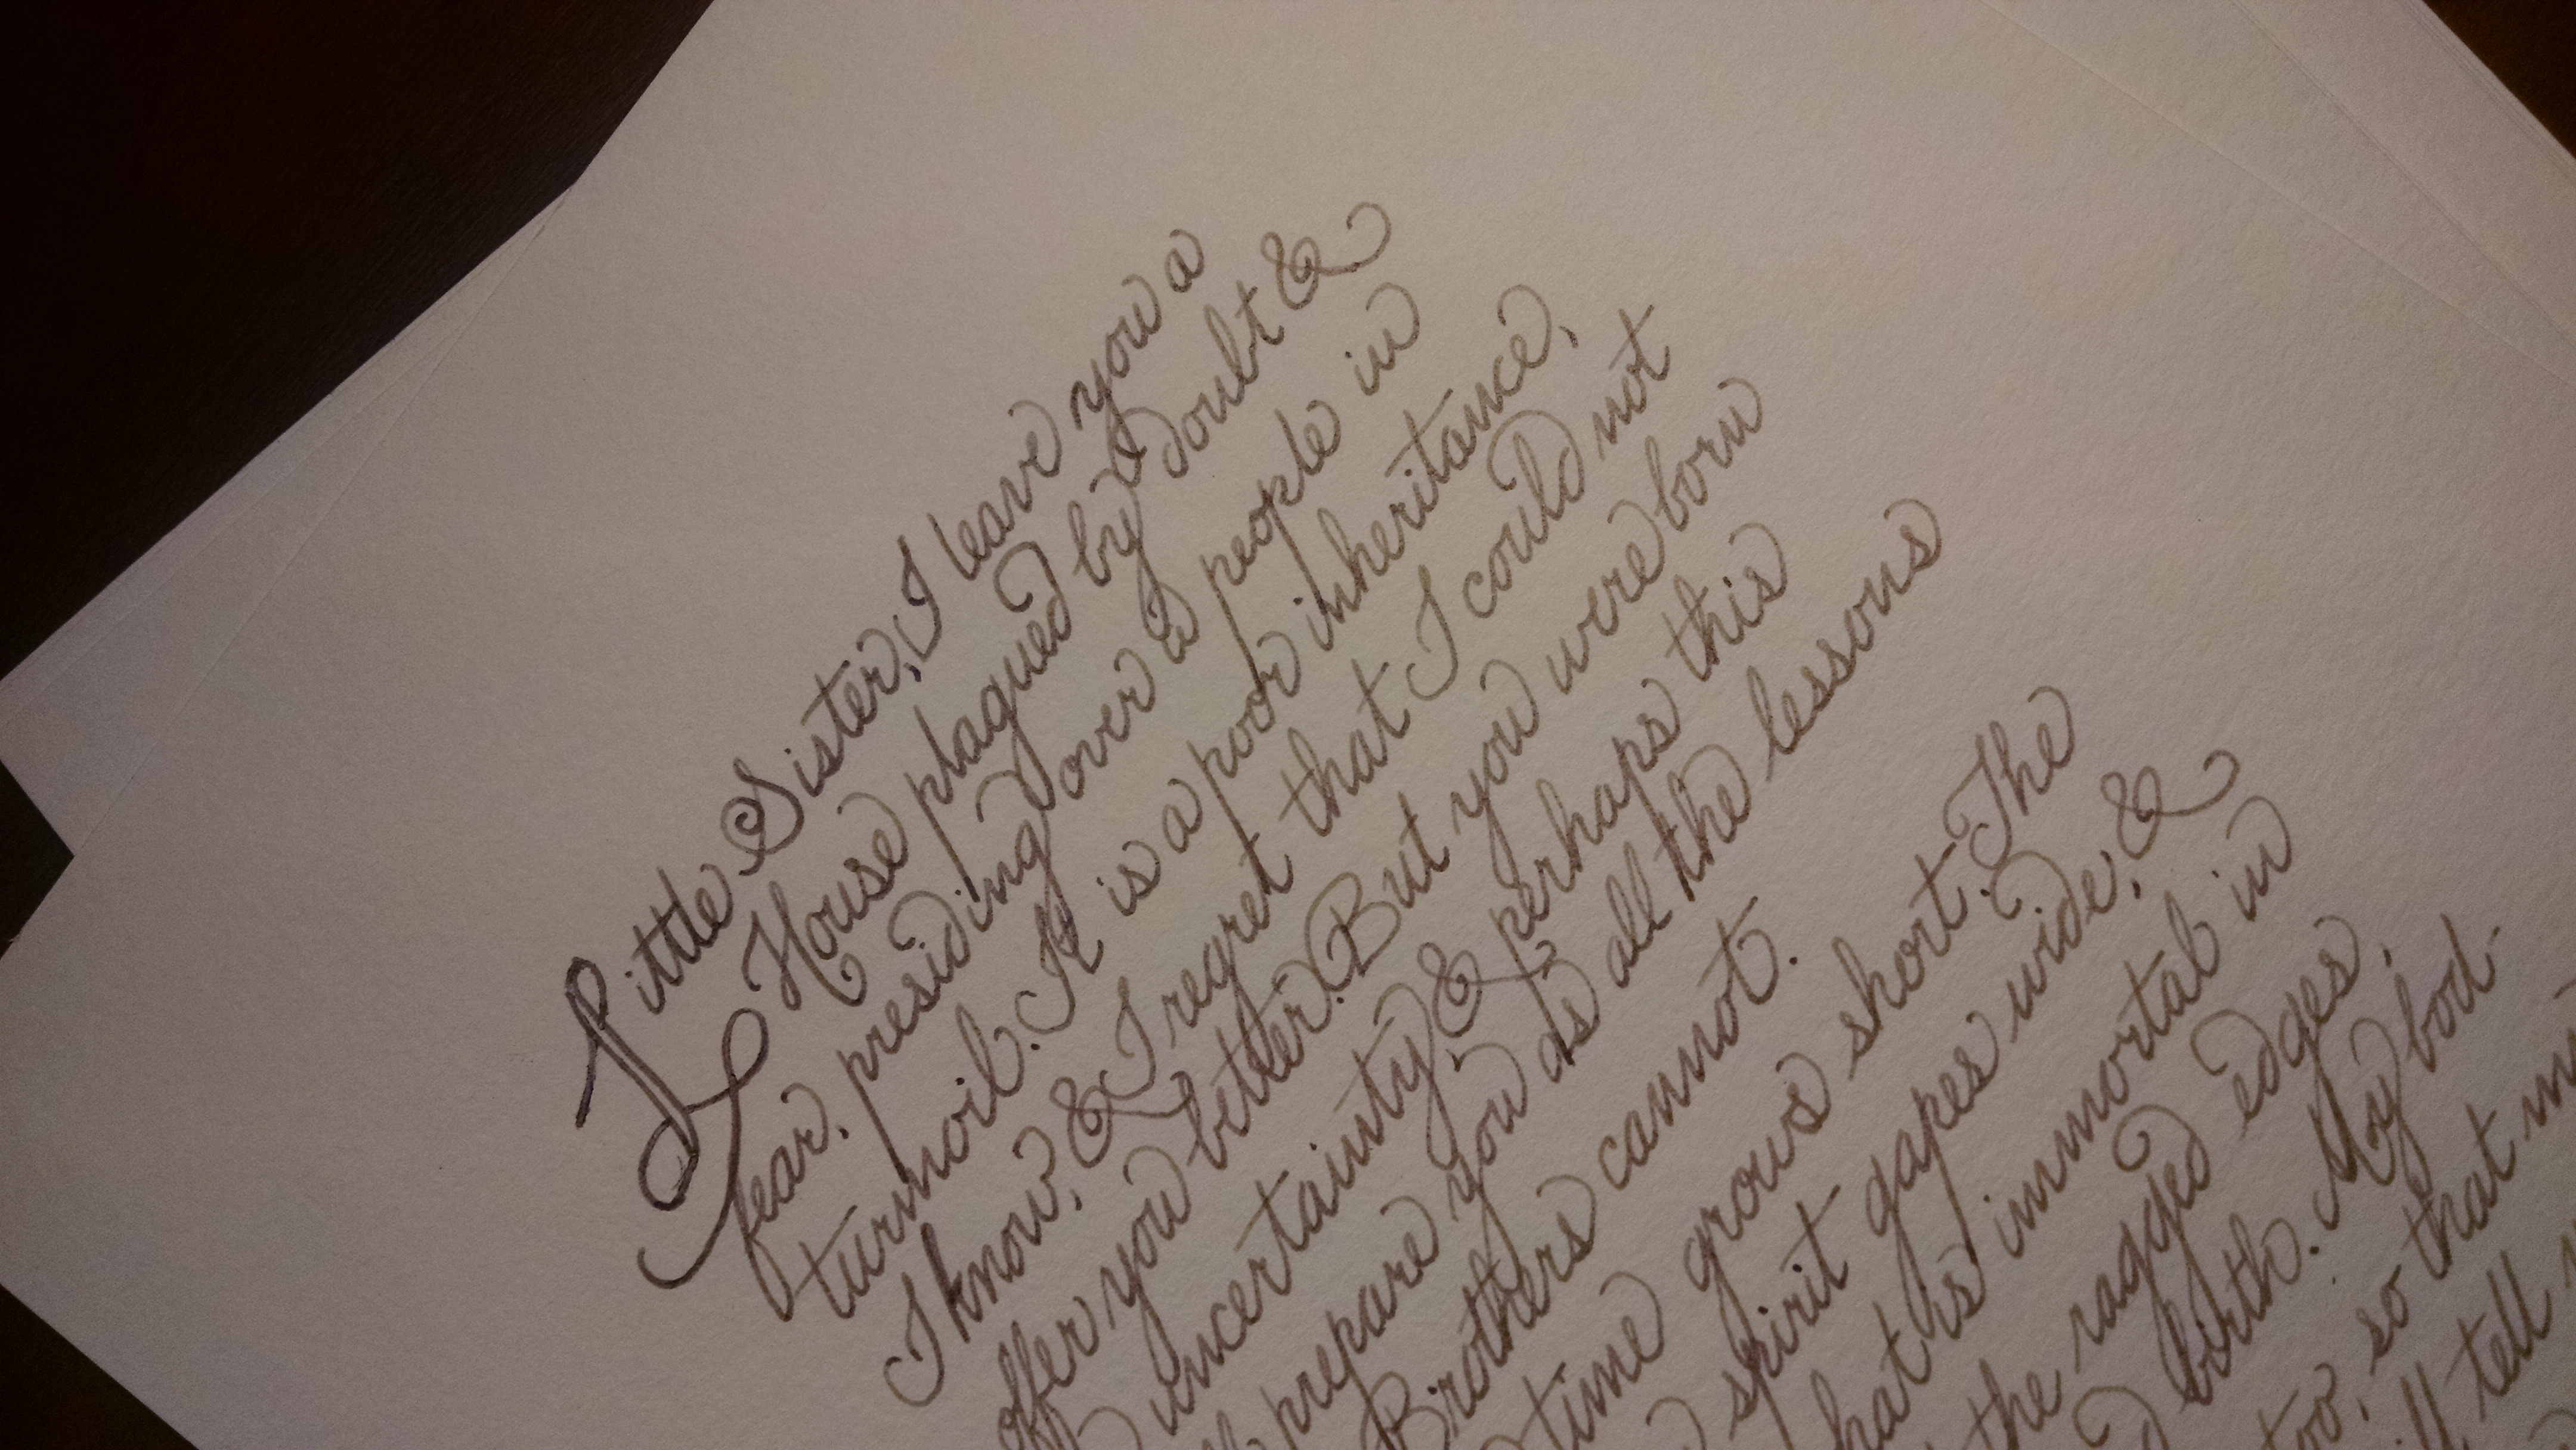 Little Sister, I leave you a
House plagued by doubt &
fear, presiding over a people in
turmoil. It is a poor inheritance,
I know, & I regret that I could not
offer you better. But you were born
uncertainty & perhaps this
prepare you as all the lessons
Brothers cannot.
time grows short. The
spirit gapes wide, &
is immortal in
the ragged edges,
birth. My bod
too, so that
tell